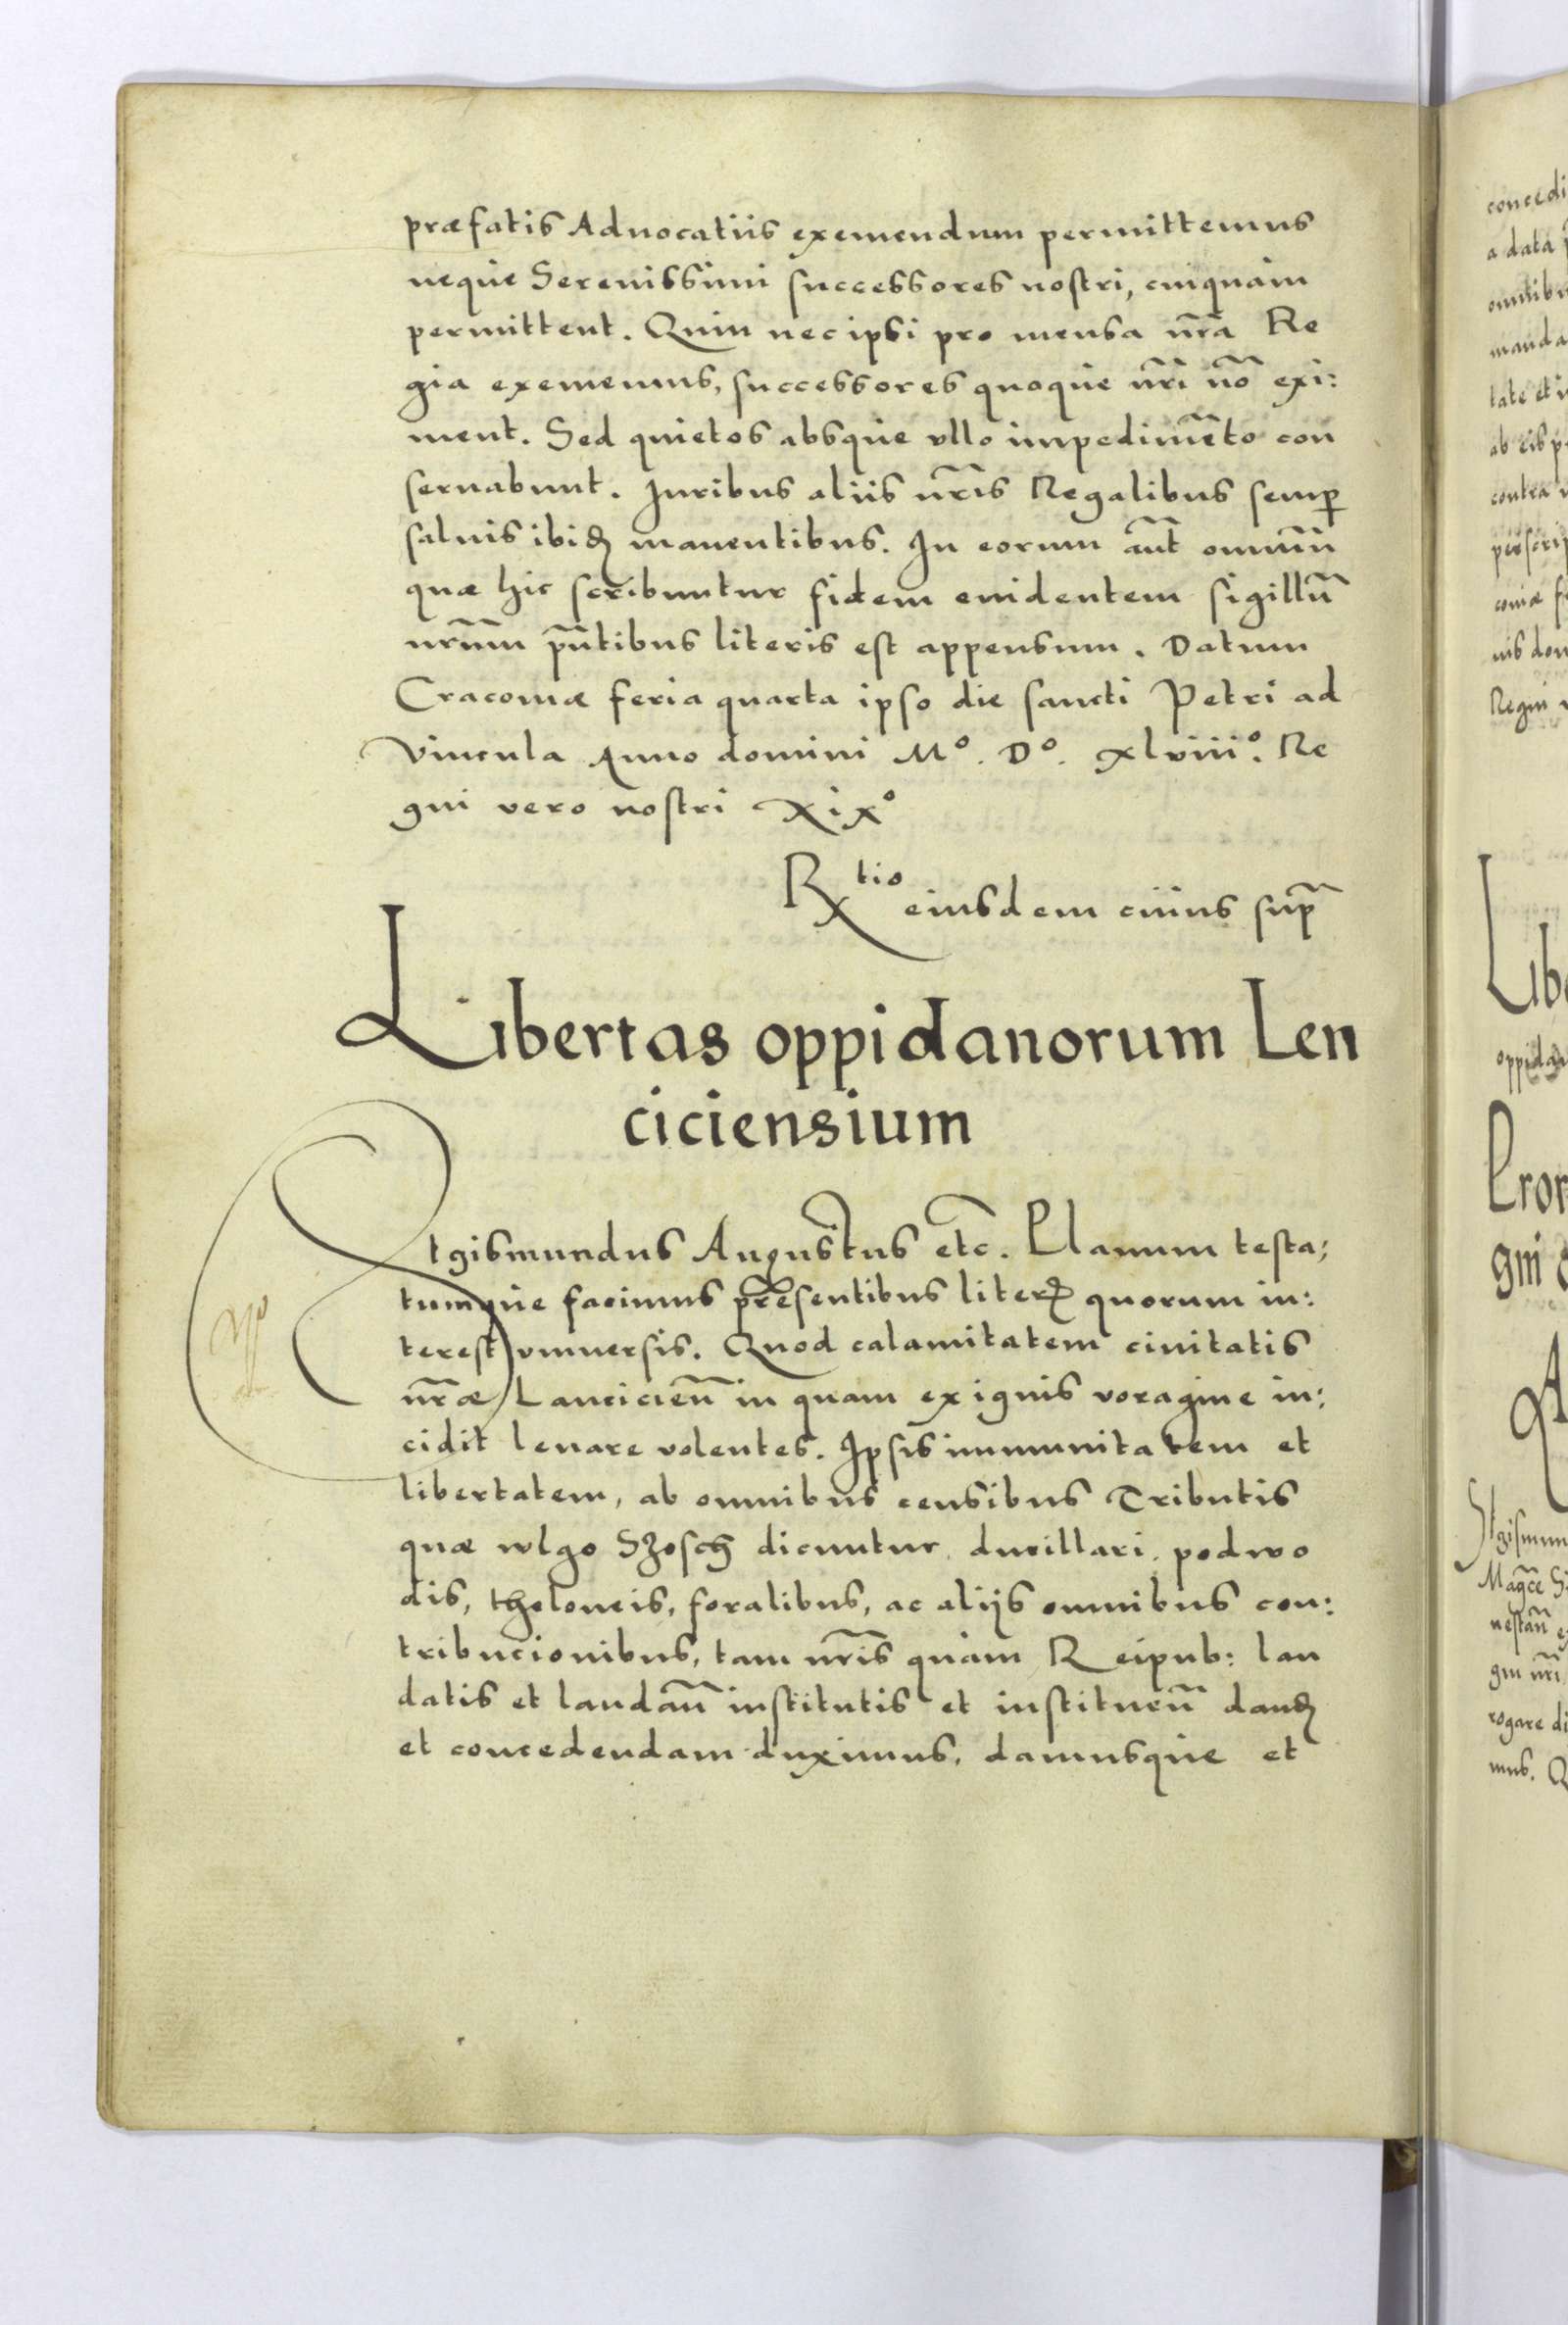 præfatis Aduocatiis exemendum permittemus
neque Serenissimi successores nostri, cuiquam
permittent. Quin nec ipsi pro mensa nr̃a Re
gia exememus, successores quoque nr̃i nõ exi:
ment. Sed quietos absque vllo impedimẽto con
seruabunt. Iuribus aliis nr̃is Regalibus semꝑ
saluis ibiđ manentibus. In eorum aũt omniũ
quæ hic scribuntur fidem euidentem sigillũ
nrũm pñtibus literis est appensum. Datum
Cracouiæ feria quarta ipso die sancti Petri ad
Vincula Anno domini Mº. Dº. xlviiiº. Re
gni vero nostri xixº
Rtio eiusdem cuius supr̃
Libertas oppidanorum Len
ciciensium
Sigismundus Augustus etc̃. Planum testa:
tumque facimus præsentibus literꝭ quorum in:
terest vniuersis. Quod calamitatem ciuitatis
nr̃æ Lanciciẽn in quam ex ignis voragine in:
cidit leuare volentes. Ipsis immunitatem et
libertatem, ab omnibus censibus Tributis
quæ wlgo Szosch dicuntur, ducillari, podwo
dis, theloneis, foralibus, ac alijs omnibus con:
tribucionibus, tam nr̃is quam Reipub: lau
datis et laudañ institutis et instituẽn danđ
et concedendam duximus, damusque et
concedi
a data
omnibu
manda
tate et i
ab eis p
contra
perscrip
couiæ f
nis don
Regni
Libe
oppidan
Pror
gni
Sigismun
Magc̃e
gni nr̃i
rogare di
mus. Q